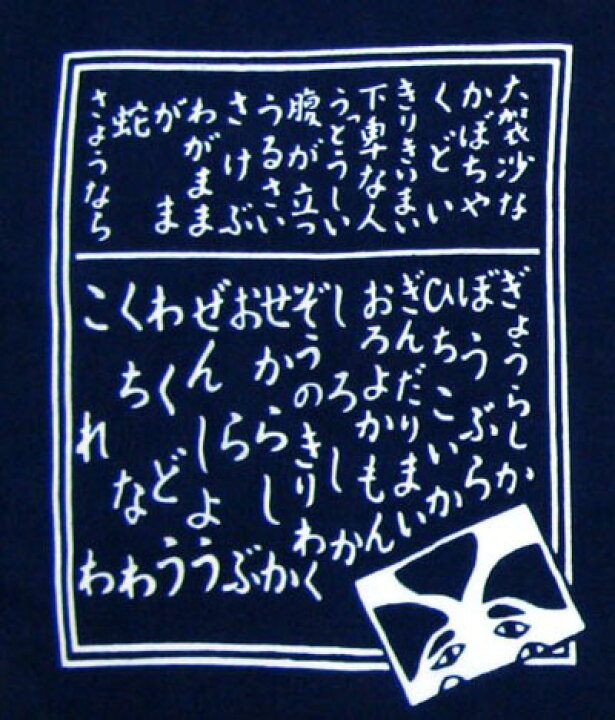 大袈沙な
かぼちゃ
くどい
きりきいまい
下卑な人
うっとうしい
腹が立つ
うるさい
さけぶ
わがまま
がま
蛇
さようなら
ぎょうらしか
ぼうぶら
ひちこいか
ぎんだりまい
おろよかもん
しろしか
ぞうのきりわく
せからしか
おらぶ
ぜんしょう
わくどう
くちなわ
これわ